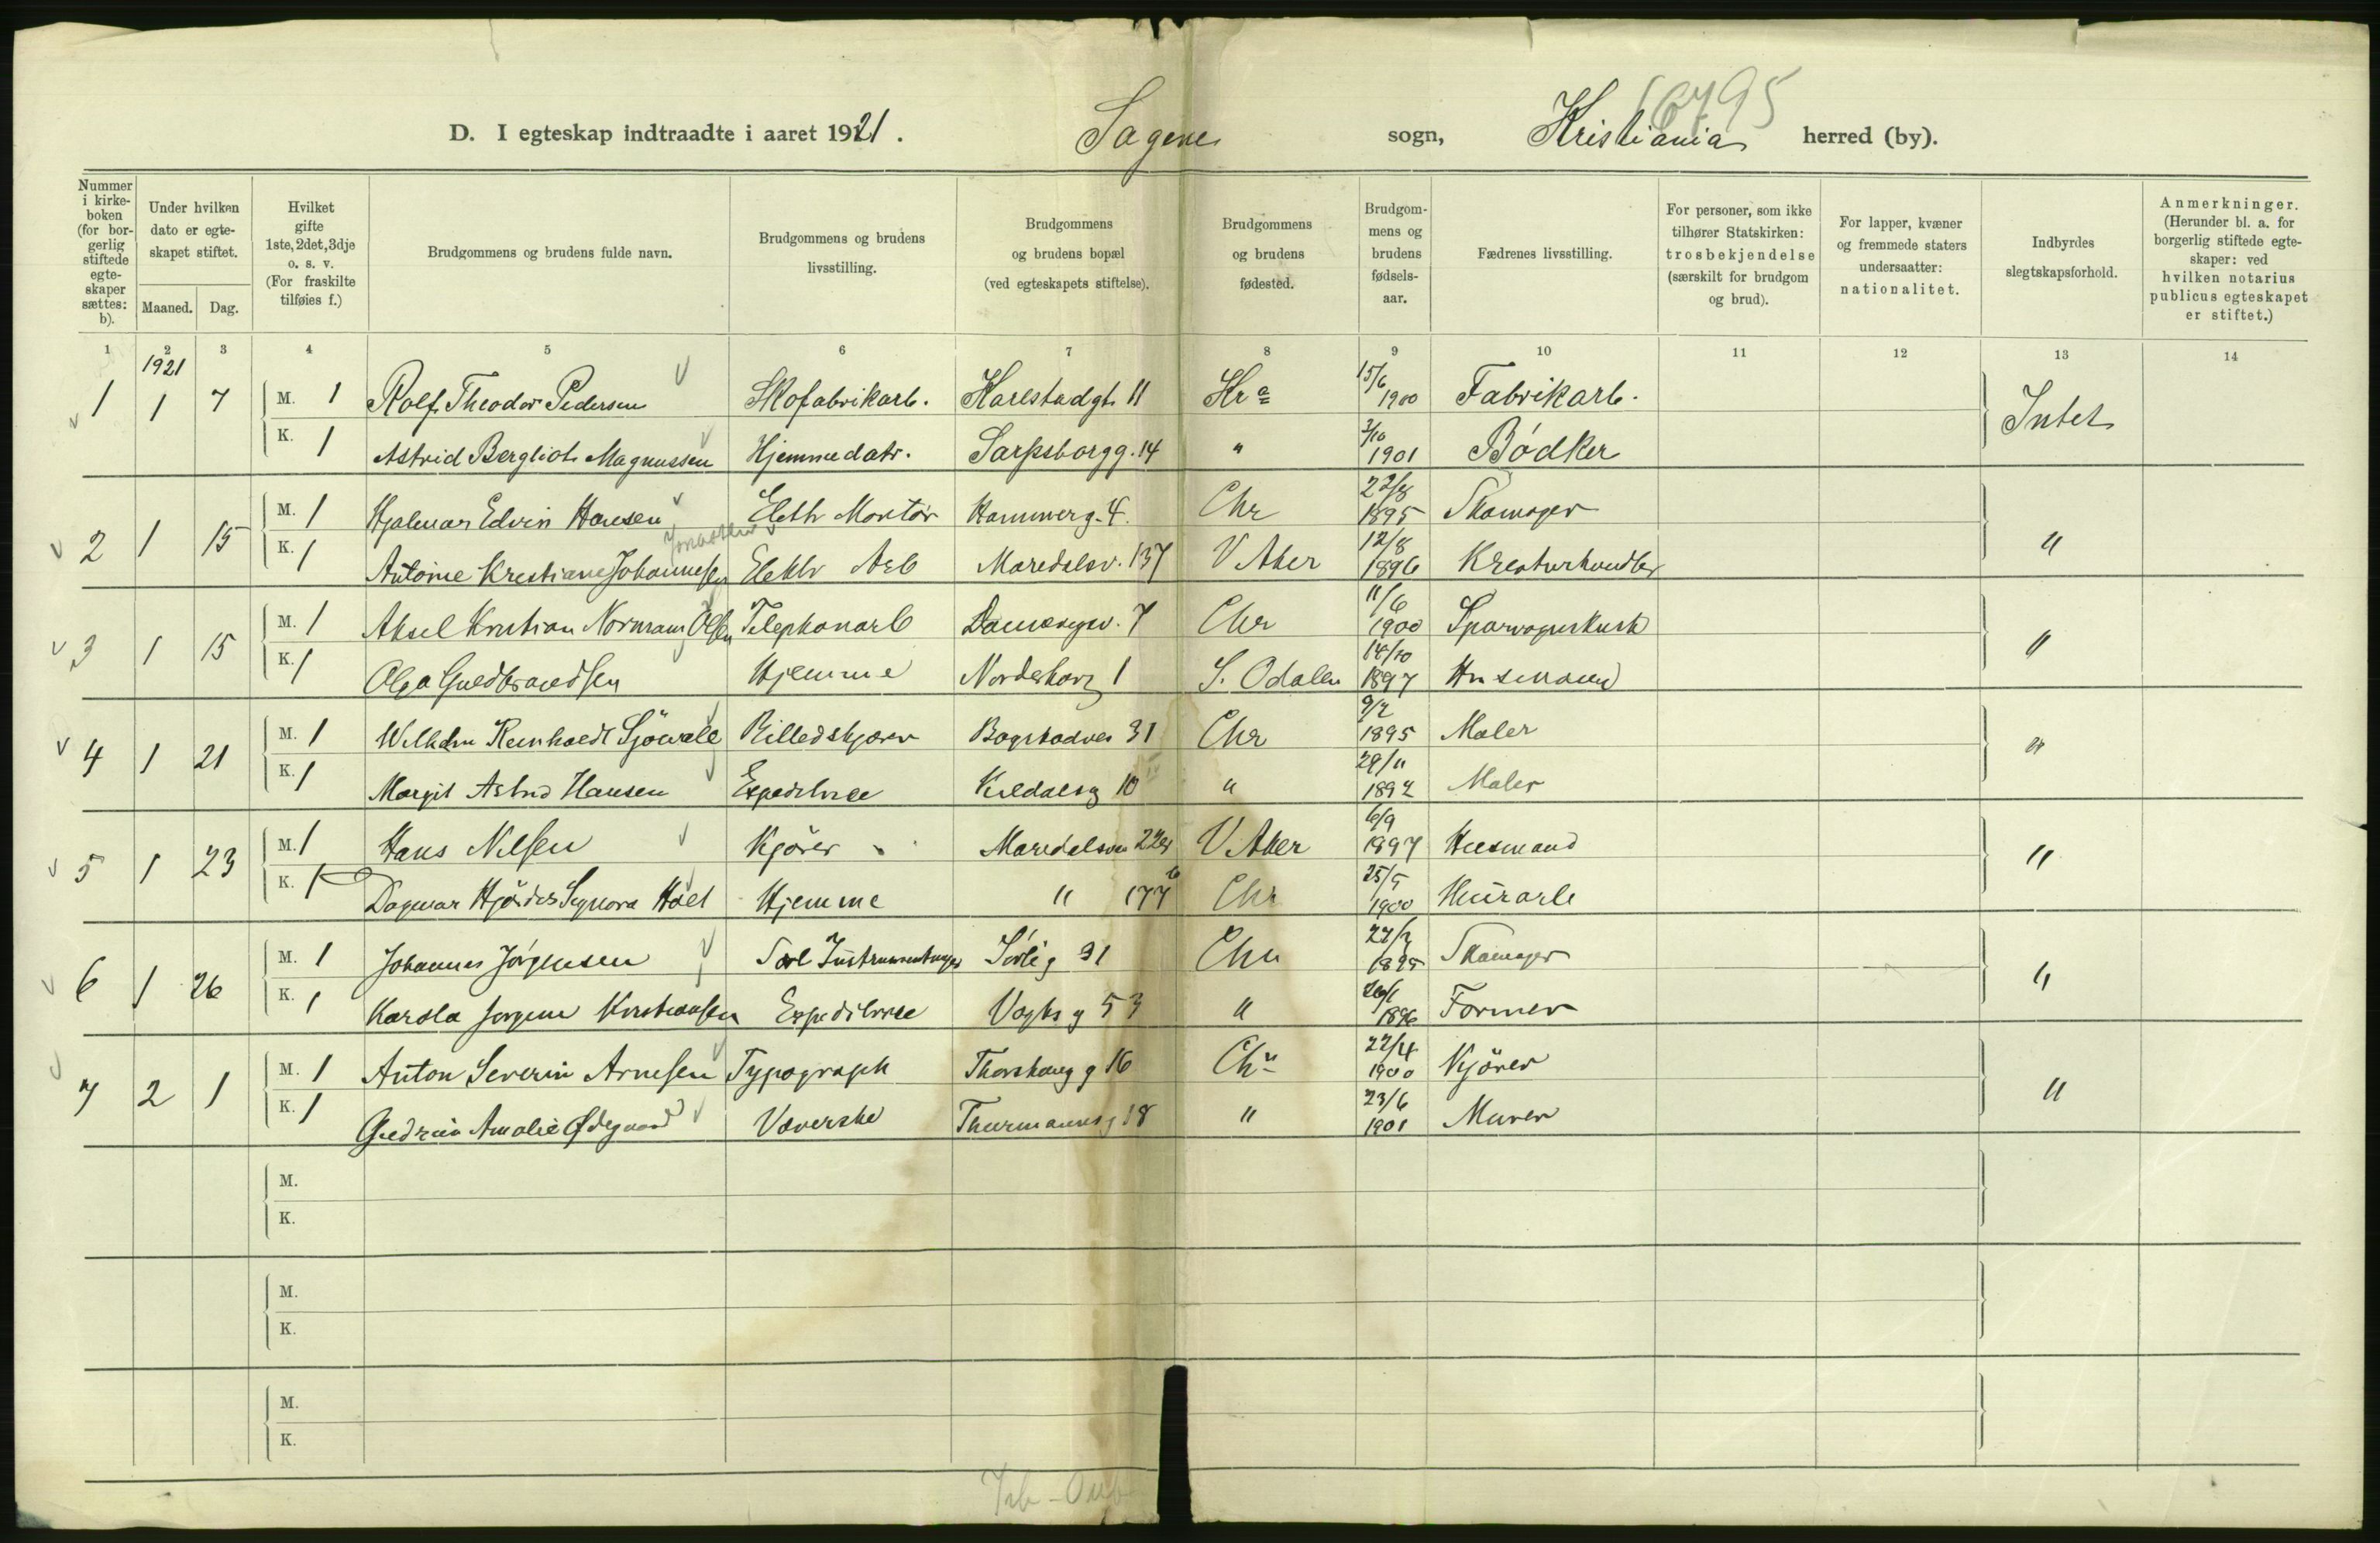 6795
D. I egteskap indtraadte i aaret 1921. Sagene sogn, Kristiania herred (by).
Nummer i kirkeboken (for borgerlig stiftede egteskaper sættes: b).
Under hvilken dato er egteskapet stiftet.
Maaned. Dag.
Hvilket gifte 1ste, 2det, 3dje o. s. v. (For fraskilte tilføies f.)
Brudgommens og brudens fulde navn.
Brudgommens og brudens livsstilling.
Brudgommens og brudens bopæl (ved egteskapets stiftelse).
Brudgommens og brudens fødested.
Brudgommens og brudens fødselsaar.
Fædrenes livsstilling.
For personer, som ikke tilhører Statskirken: trosbekjendelse (særskilt for brudgom og brud).
For lapper, kvæner og fremmede staters undersaatter: nationalitet.
Indbyrdes slegtskapsforhold.
Anmerkninger. (Herunder bl. a. for borgerlig stiftede egteskaper: ved hvilken notarius publicus egteskapet er stiftet.)
1 2 3 4 5 6 7 8 9 10 11 12 13 14
1921
1 1 7 M. 1 Rolf Theodor Pedersen Skofabrikarb. Karlstadgt. 11 Kr a 15/6 1900 Fabrikarb. Intet
K. 1 Astrid Bergliot Magnussen Hjemmedatr. Sarpsborgg. 14 " 3/10 1901 Bödker
2 1 15 M. 1 Hjalmar Edvin Hansen Elektr Montör Hammerg. 4. Chr 22/8 1895 Skomager "
K. 1 Antoine Kristiane Johannesen Elektr Arb Maredalsv. 137 V Aker 12/8 1896 Kreaturhandler
3 1 15 M. 1 Aksel Kristian Normann Olsen Telephonarb 7 Chr 11/6 1900 Sporvognskusk "
K. 1 Olga Guldbrandsen Hjemme Norderhovg 1 S. Odalen 14/10 1897 Husmand
4 1 21 M. 1 Wilhelm Reinholdt Sjöwall Billedskjærer Bogstadvei 31 Chr 9/2 1895 Maler "
K. 1 Margit Astrid Hansen Expeditrice 10 " 29/11 1892 Maler
5 1 23 M. 1 Hans Nilsen Kjörer Maredalsvn V. Aker 6/9 1897 Husmand "
K. 1 Dagmar Hjördis Signora Hoel Hjemme " 177 b Chr 25/5 1900 Murarb
6 1 26 M. 1 Johannes Jörgensen Sörlig 31 Chr 22/2 1895 Skomager "
K. 1 Karola Jorgine Kristiansen Expeditrice Vogts g 53 " 26/1 1896 Former
7 2 1 M. 1 Anton Severin Arnesen Typograph Thorshaug g 16 Chr 22/4 1900 Kjörer "
K. 1 Gudrun Amalie Ødegaard Væverske Thurmannsg 18 " 23/6 1901 Murer
M.
K.
M.
K.
M.
K.